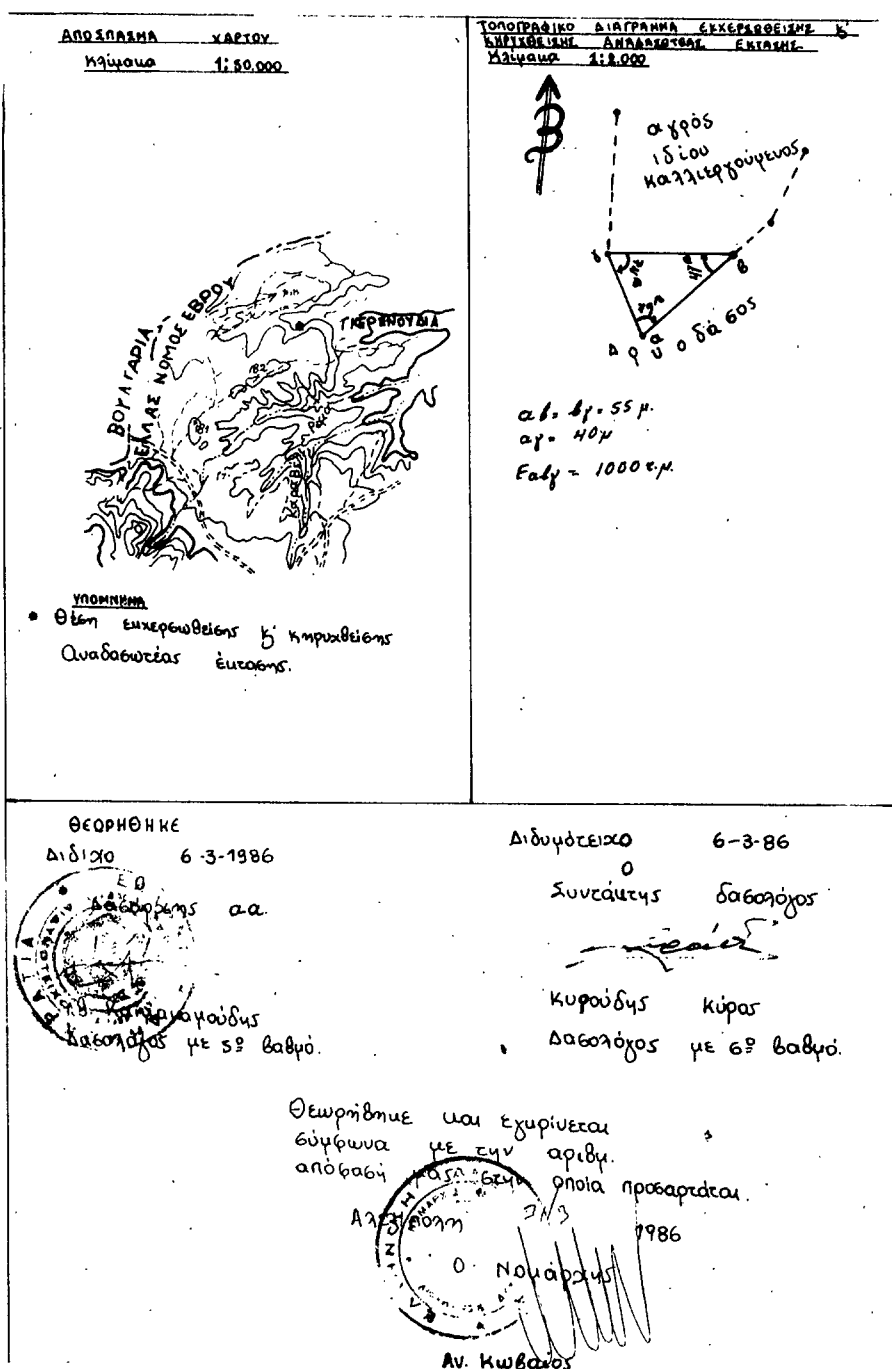 ΑΠΟΣΠΑΣΜΑ ΧΑΡΤΟΥ
Κλίμακα 1:50.000
ΒΟΥΛΓΑΡΙΑ
ΕΛΛΑΣ ΝΟΜΟΣ ΕΒΡΟΥ
ΓΚΕΡΕΝΟΥΔΙΑ
182
Ρέμα
ΥΠΟΜΝΗΜΑ
Θέση εκχερσωθείσης ϗ' κηρυχθείσης
Αναδασωτέας έκτασης.
ΤΟΠΟΓΡΑΦΙΚΟ ΔΙΑΓΡΑΜΜΑ ΕΚΧΕΡΣΩΘΕΙΣΗΣ ϗ'
ΚΗΡΥΧΘΕΙΣΗΣ ΑΝΑΔΑΣΩΤΕΑΣ ΕΚΤΑΣΗΣ
Κλίμακα 1:2.000
Β
αγρός
ιδίου
καλλιεργούμενος
γ
β
α
Δ ρ υ ο δάσος
αβ = βγ = 55 μ.
αγ = 40μ
Εαβγ = 1000 τ.μ.
ΘΕΩΡΗΘΗΚΕ
Διδ/χο 6-3-1986
Ο
Δασάρχης α.α.
Δασολόγος με 5º βαθμό.
Διδυμότειχο 6-3-86
Ο
Συντάκτης δασολόγος
Κυρούδης Κύρος
Δασολόγος με 6º βαθμό.
Θεωρήθηκε και εγκρίνεται
σύμφωνα με την αριθμ.
απόφασή μας στην οποία προσαρτάται.
Αλεξ/πολη 1986
Ο Νομάρχης
Αν. Κωβαίος